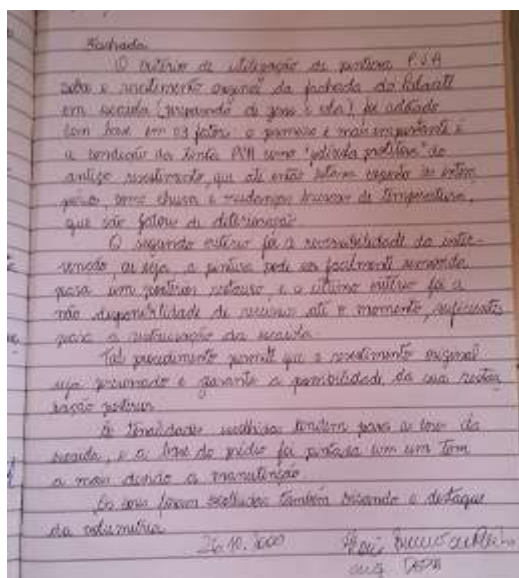 Fachada
O critério de utilização de pintura P.V.A
sobre o revestimento original da fachada do
em escaiola (preparado de gesso e cola) foi adotado
com base em 03 fatores o primeiro e mais importante é
a condição da tinta PVA como "película protetora" do
antigo revestimento, que até então estava exposto às intem
péries, como chuva e mudanças bruscas de temperatura,
que são fatores de deterioração.
O segundo critério foi a reversibilidade da inter-
venção, ou seja, a pintura pode ser facilmente removida
para um posterior restauro, e o último critério foi a
não disponibilidade de recursos até o momento, suficientes
para a restauração da escaiola.
Tal procedimento permite que o revestimento original
seja preservado e garante a possibilidade da sua restau
ração posterior.
As tonalidades escolhidas tendem para as cores da
escaiola, e a base do prédio foi pintada com um tom
a mais devido a manutenção.
As cores foram escolhidas também visando o destaque
da volumetria.
26.10.2000